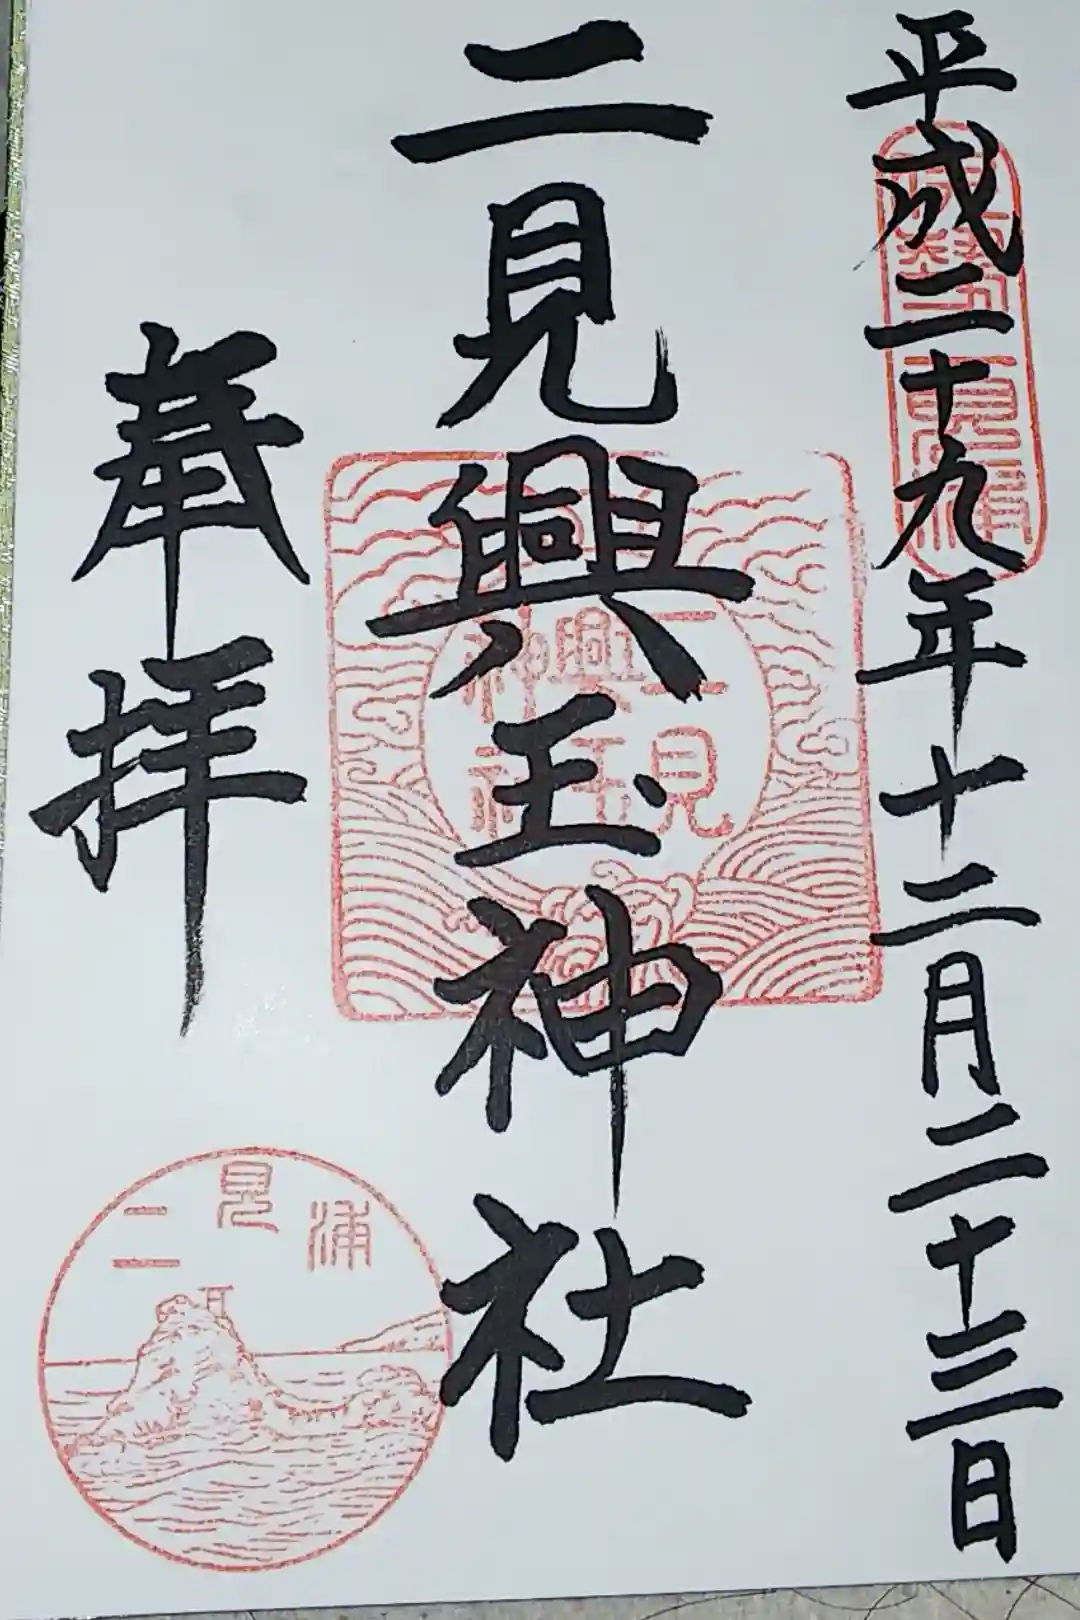 平成二十九年十二月二十三日
伊勢二見浦
二見興玉神社
二見興玉神社
奉拝
二見浦